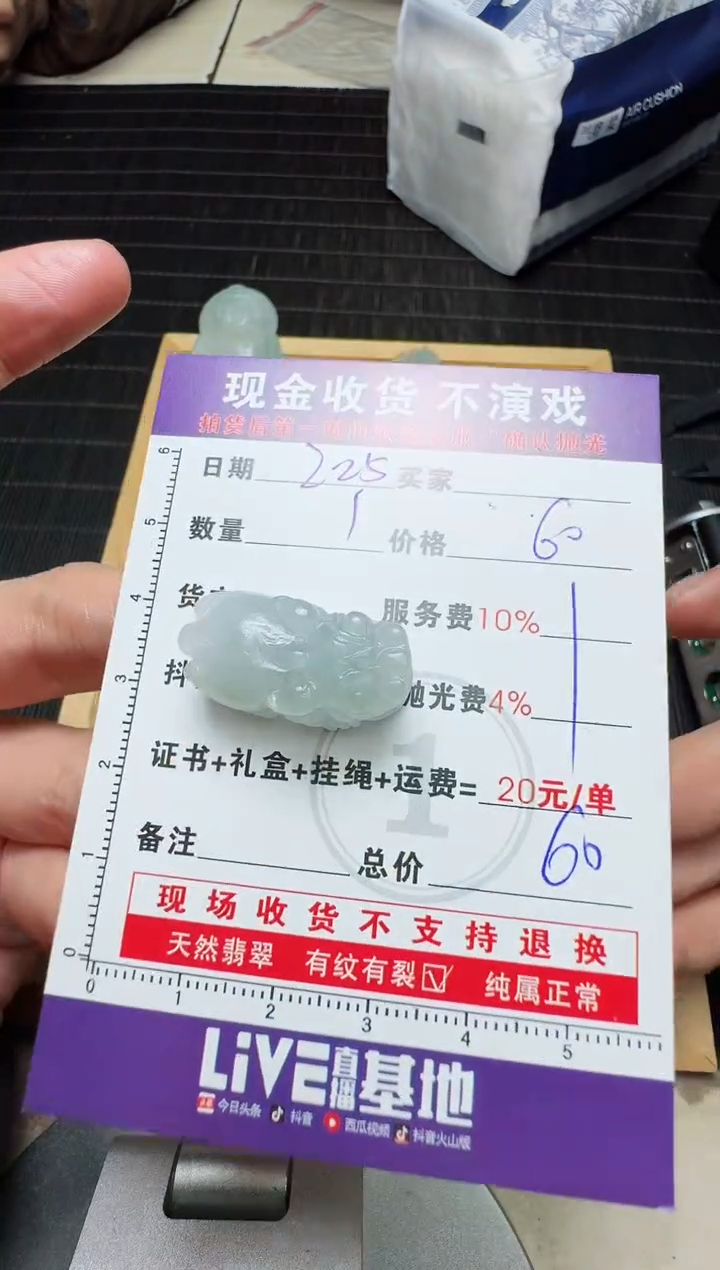 AIR CUSHION
现金收货 不演戏
日期 225 买家
数量 1 价格 60
服务费10%
抛光费4%
证书+礼盒+挂绳+运费= 20元/单
1
备注 总价 60
现场收货不支持退换
天然翡翠 有纹有裂☑ 纯属正常
6
5
4
3
2
1
0
0 1 2 3 4 5
LiVE直播基地
今日头条 抖音 西瓜视频 抖音火山版